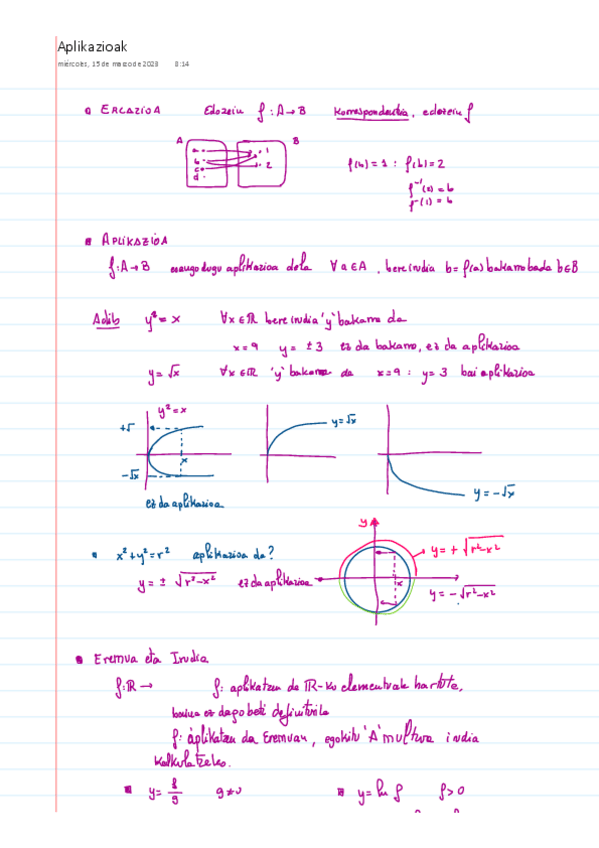 Aplikazioak
miércoles, 15 de marzo de 2023 8:14
ERLAZIOA Edozein f : A → B Korrespondentzia, edozein f
A B
a 1
b 2
c
d
f(b) = 1 : f(b) = 2
f⁻¹(2) = b
f⁻¹(1) = b
APLIKAZIOA
f: A → B esango dugu aplikazioa dela ∀ a ∈ A, bere irudia b = f(a) bakarra bada b ∈ B
Adib y² = x ∀x ∈ ℝ bere irudia 'y' bakarra da
x = 9 y = ± 3 ez da bakarra, ez da aplikazioa
y = √x ∀x ∈ ℝ 'y' bakarra da x = 9 : y = 3 bai aplikazioa
y² = x
+√ x
-√x
y = √x
y = -√x
ez da aplikazioa
x² + y² = r² aplikazioa da?
y = ± √r²-x² ez da aplikazioa
y
x
y = + √r²-x²
y = - √r²-x²
Eremua eta Irudia
f: ℝ → f: aplikatzen da ℝ-ko elementuak hartuta,
baina ez dago beti definituta
f: aplikatzen da Eremuan, egokitu 'A' multzoa irudia
kalkulatzeko.
y = f/g g ≠ 0 y = ln f f > 0